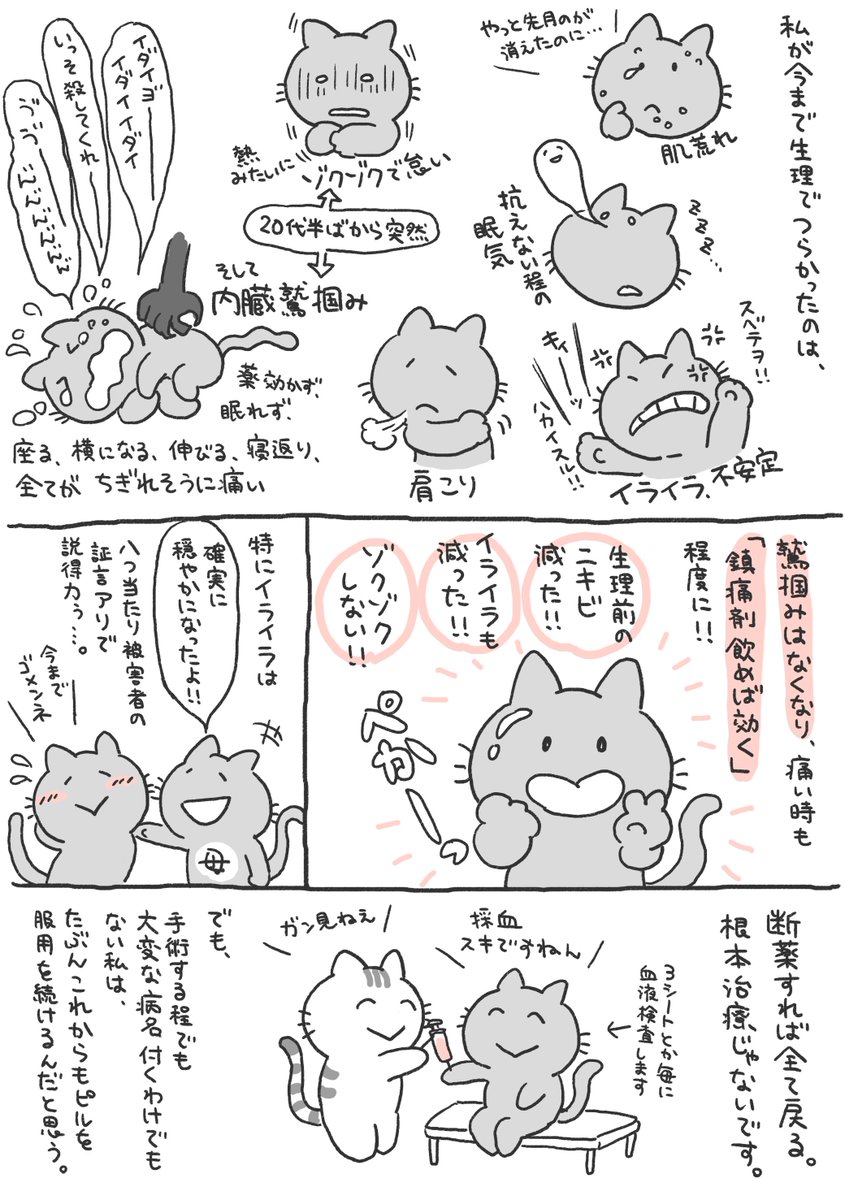 私が今まで生理でつらかったのは、
やっと先月のが
消えたのに…
肌荒れ
zzz…
抗えない程の
眠気
スベテヲ!!
キィーーッ
ハカイスル!!
イライラ、不安定
熱
みたいに
ゾクゾクで怠い
20代半ばから突然
そして
内臓鷲掴み
肩こり
イダイヨーー
イダイイダイ
いっそ殺してくれー
薬効かず、
眠れず、
座る、横になる、伸びる、寝返り、
全てが ちぎれそうに痛い
鷲掴みはなくなり、痛い時も
「鎮痛剤 飲めば効く」
程度に!!
生理前の
ニキビ
減った!!
イライラも
減った!!
ゾクゾク
しない!!
ぺかーーっ
特にイライラは
確実に
穏やかになったよ!!
八つ当たり被害者の
証言アリで
説得力ぅ…。
今まで
ゴメンネ
母
断薬すれば全て戻る。
根本治療じゃないです。
3シートとか毎に
血液検査します
採血
スキですねん
ガン見ねぇ
でも、
手術する程でも
大変な病名付くわけでも
ない私は、
たぶんこれからもピルを
服用を続けるんだと思う。